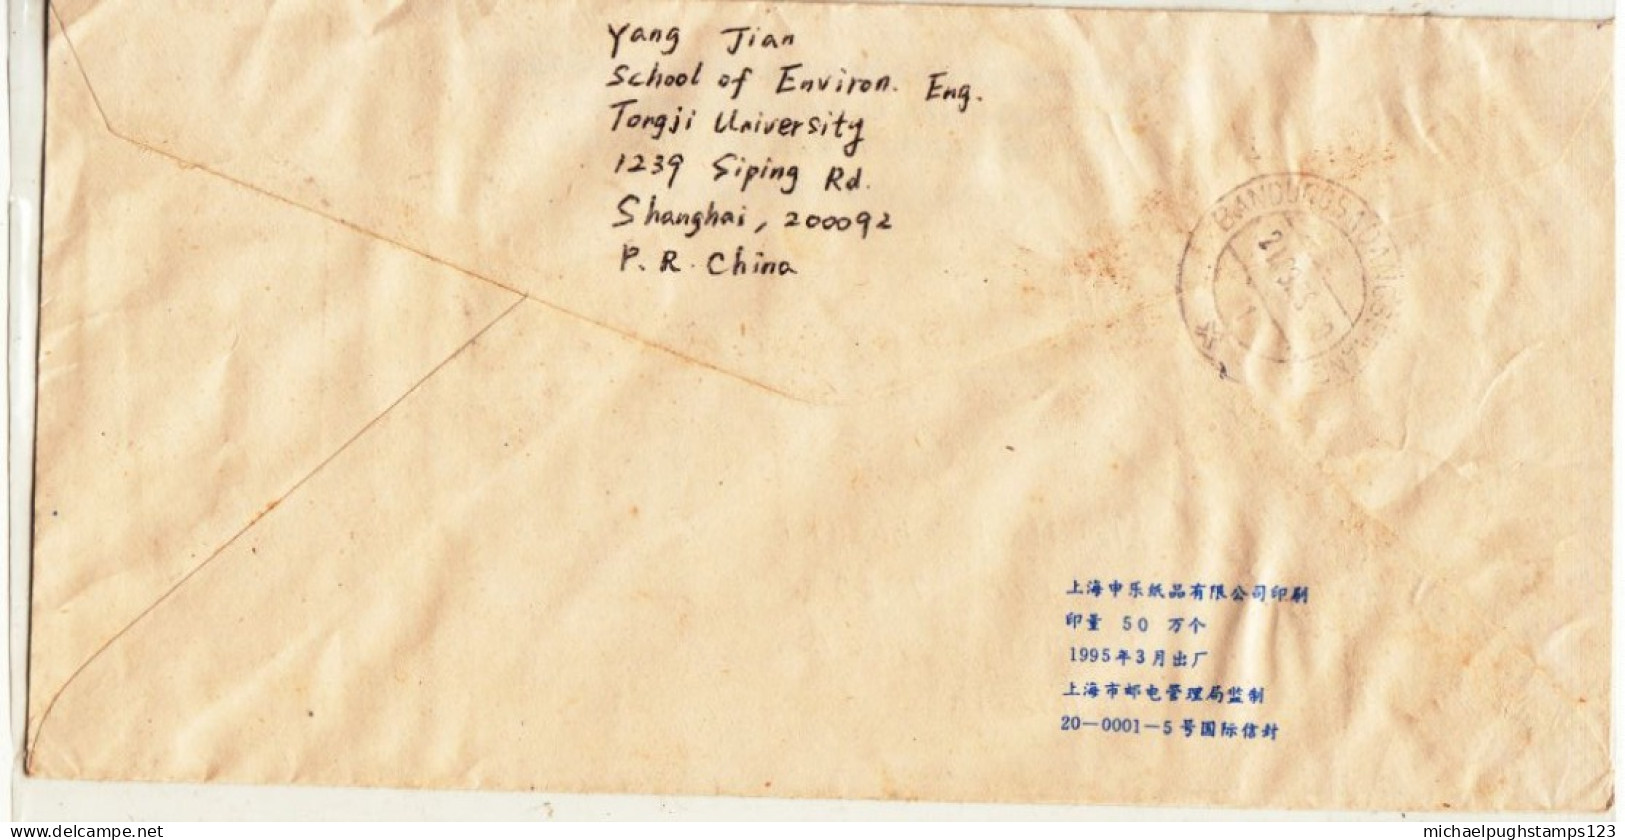 Yang Jian
School of Environ. Eng.
Tongji University
1239 Siping Rd.
Shanghai, 200092
P. R. China
上海申乐纸品有限公司印刷
印量 50 万个
1995年3月出厂
上海市邮电管理局监制
20—0001—5号国际信封
www.delcampe.net
michaelpughstamps123